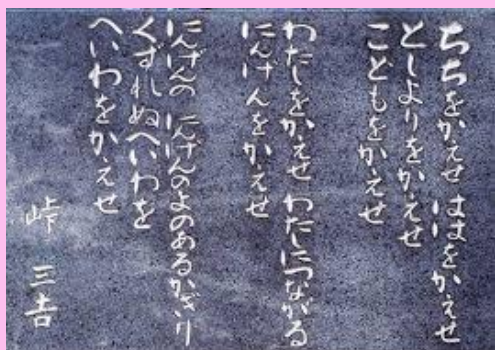 ちちをかえせ ははをかえせ
としよりをかえせ
こどもをかえせ
わたしをかえせ わたしにつながる
にんげんをかえせ
にんげんの にんげんのよのあるかぎり
くずれぬへいわを
へいわをかえせ
峠 三吉